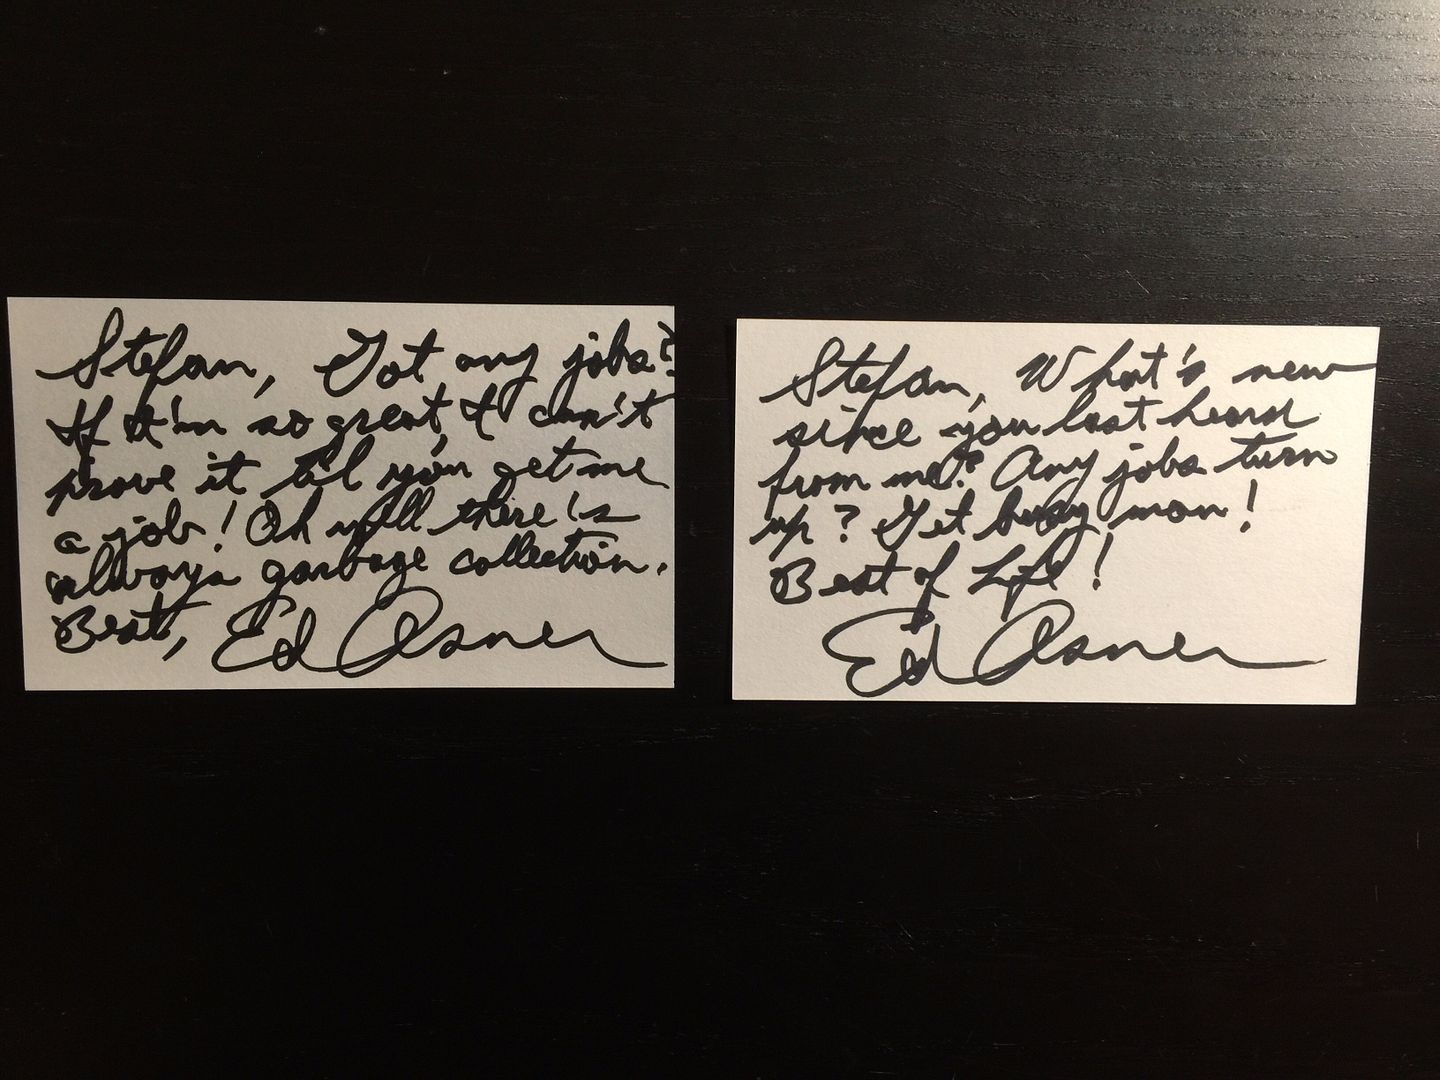 Stefan, Got any jobs?
If I'm so great, I can't
prove it til you get me
a job! Oh well there's
always garbage collection.
Best, Ed Asner
Stefan, What's new
since you last heard
from me? Any jobs turn
up? Get busy man!
Best of Life!
Ed Asner